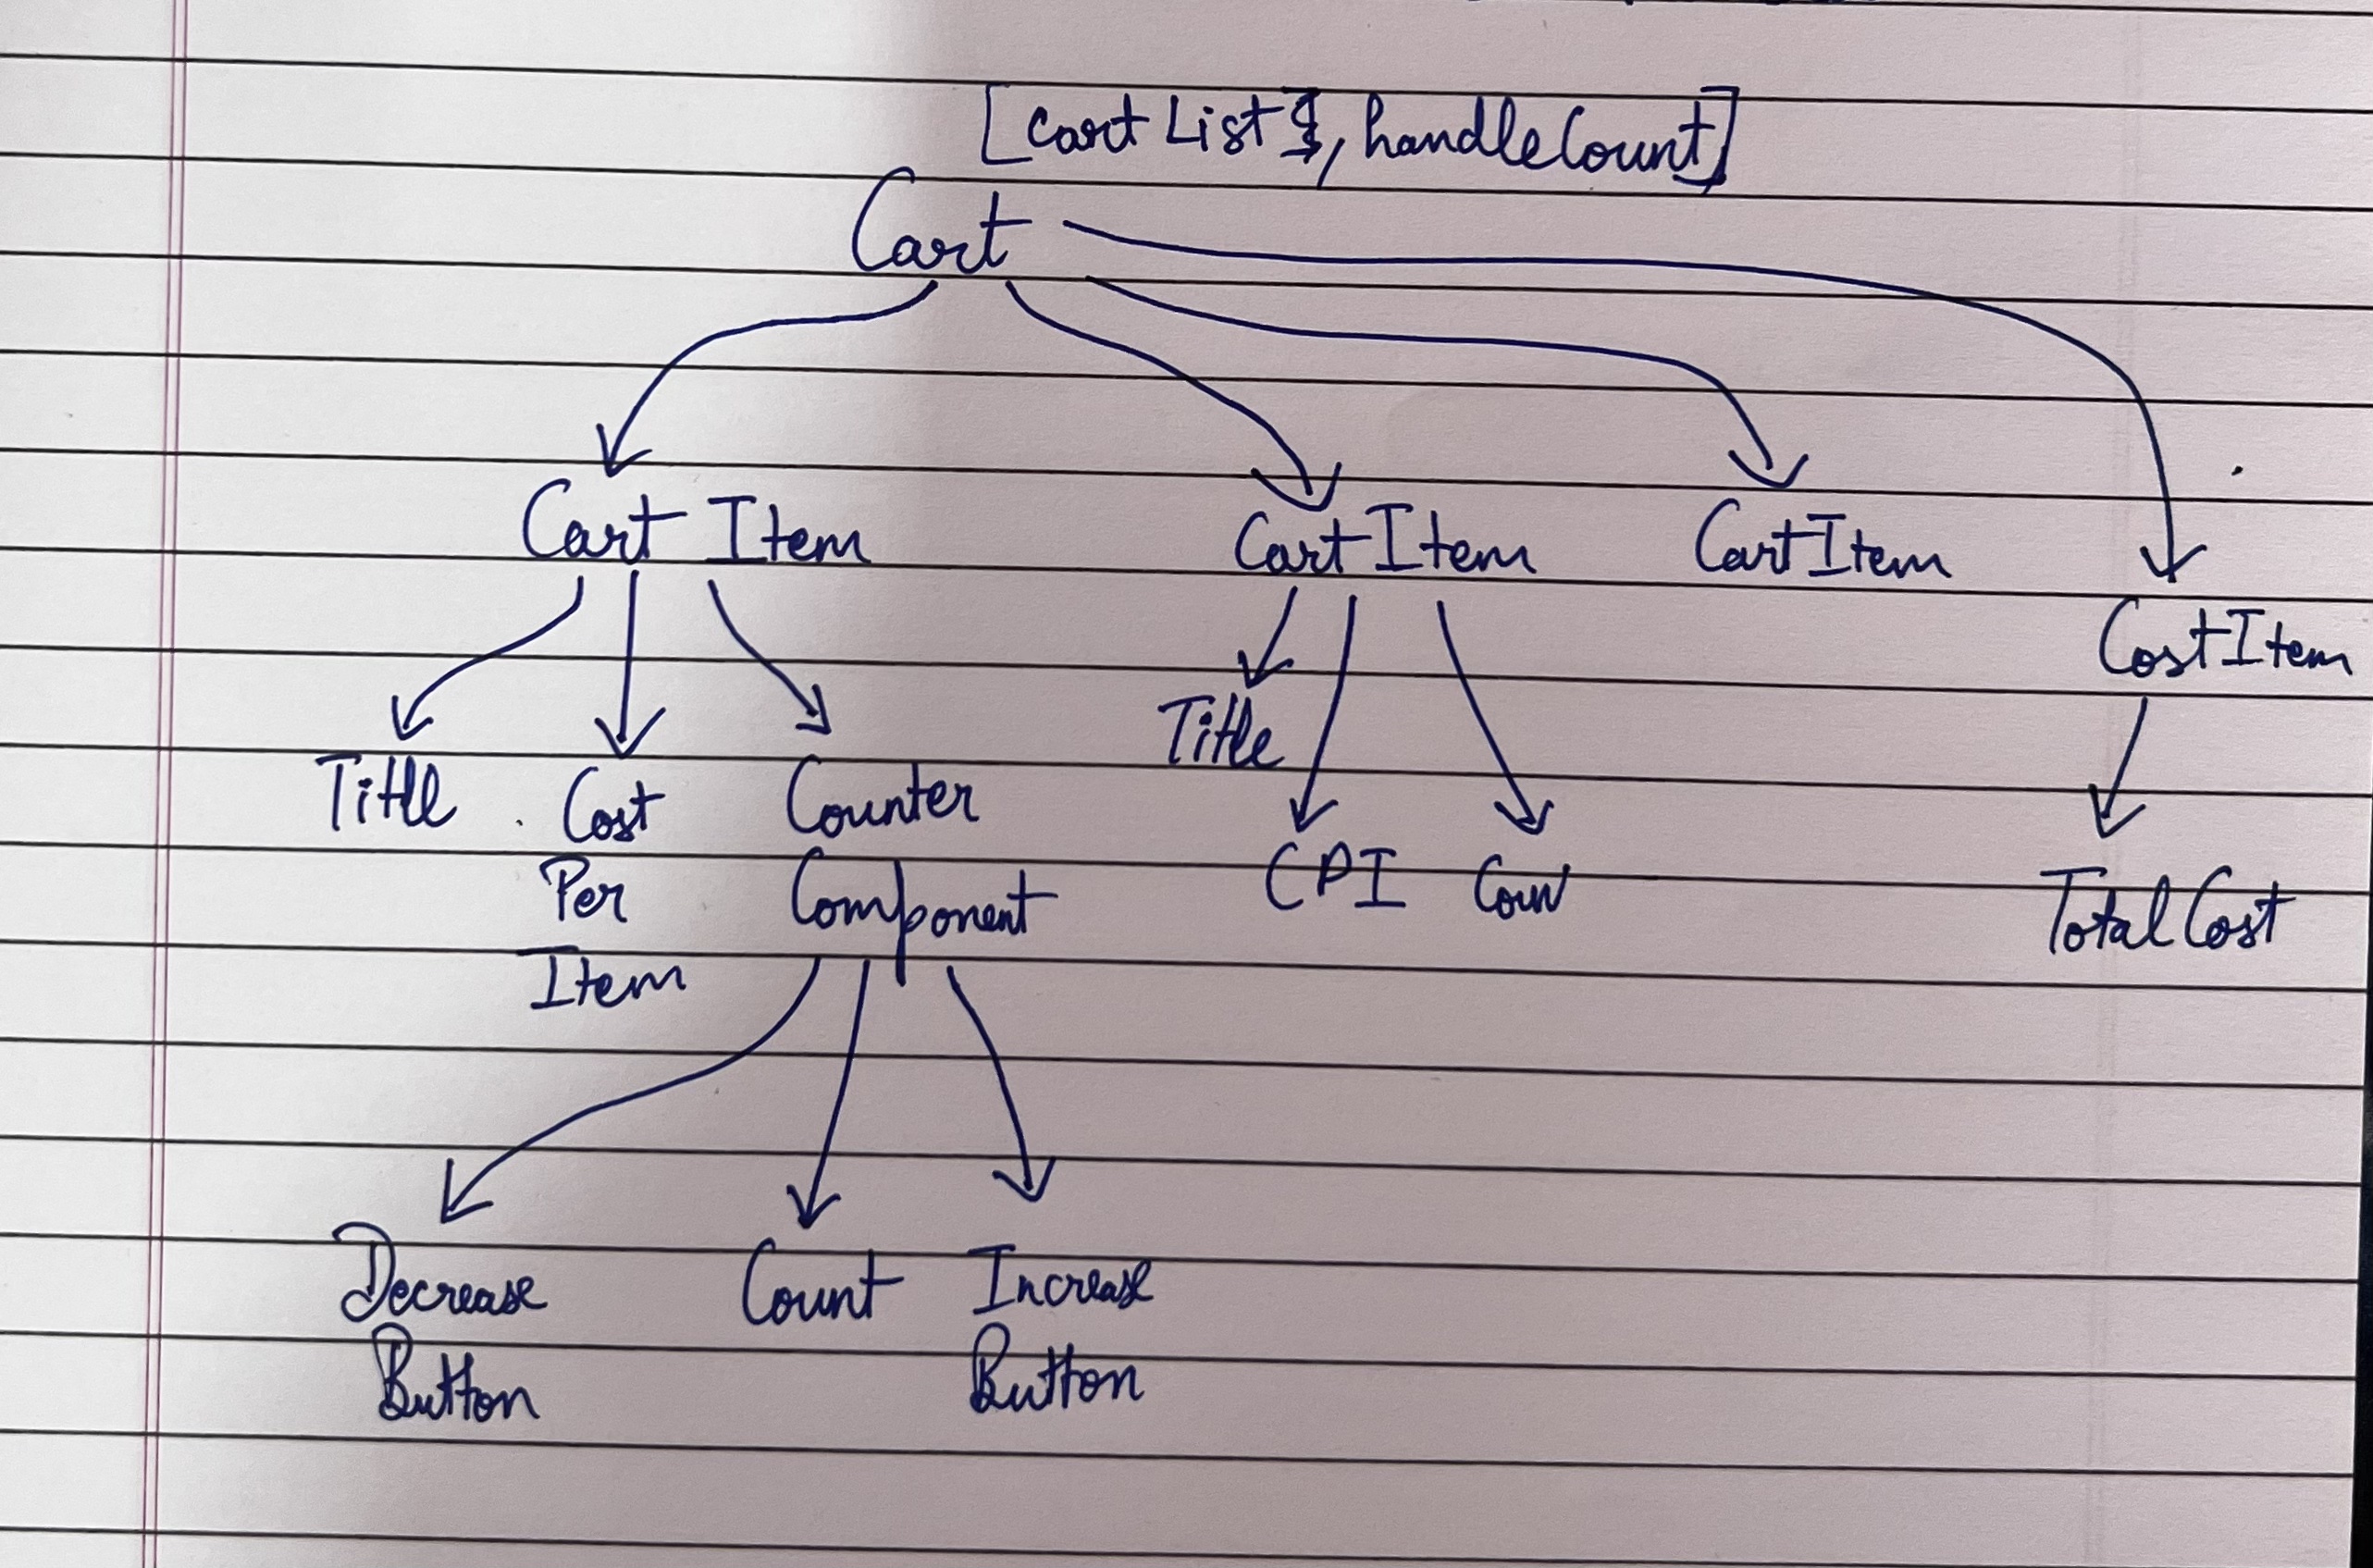 [cartList, handleCount]
Cart
Cart Item
CartItem
CartItem
CostItem
Title
Cost
Per
Item
Counter
Component
Title
CPI
Coun
Total Cost
Decrease
Button
Count
Increase
Button